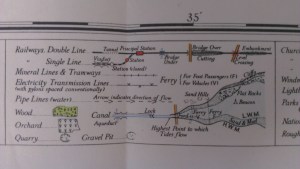 35'
Railways, Double Line
Tunnel Principal Station
Bridge Over
Embankment
Single Line
Viaduct
Station
Bridge Under
Cutting
Level Crossing
Mineral Lines & Tramways
Station (closed)
Electricity Transmission Lines
(with pylons spaced conventionally)
Ferry
(For Foot Passengers) (F)
(For Vehicles) (V)
Pipe Lines (water)
Arrow indicates direction of flow
Sand Hills
Flat Rocks
Wood
Canal
Lock
Ferry
Beacon
Orchard
Aqueduct
H.W.M
L.W.M
Quarry
Gravel Pit
Highest Point to which
Tides flow